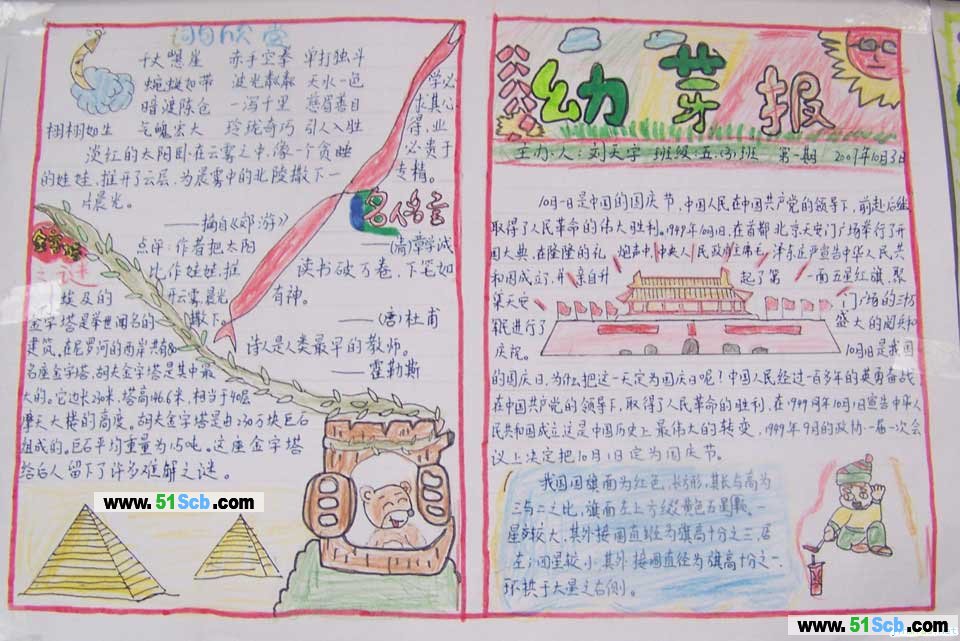 词句欣赏
悬崖 赤手空拳 单打独斗
蜿蜒如带 波光粼粼 天水一色
暗渡陈仓 一泻千里 慈眉善目
栩栩如生 气魄宏大 玲珑奇巧 引人入胜
淡红的太阳卧在云雾之中,像一个贪睡
的娃娃,推开了云层,为晨雾中的北陵撒下一
片晨光。
——摘自《郊游》
点评:作者把太阳
比作娃娃,推
开云雾,晨光
撒下。
学必
求其心
得,业
必贵于
专精。
名人名言
——(清)章学诚
读书破万卷,下笔如
有神。
——(唐)杜甫
诗人是人类最早的教师。
——霍勒斯
金字塔
之谜
埃及的
金字塔是举世闻名的
建筑,在尼罗河的西岸共有80
名座金字塔,胡夫金字塔是其中最
大的。它边长230米,塔高146.6米,相当于40层
摩天大楼的高度。胡夫金字塔是由230万块巨石
组成的。巨石平均重量为2.5吨。这座金字塔
给后人留下了许多难解之谜。
www.51Scb.com
幼芽报
主办人:刘天宇 班级:五(3)班 第一期 2007年10月3日
10月1日是中国的国庆节,中国人民在中国共产党的领导下,前赴后继
取得了人民革命的伟大胜利。1949年10月1日,在首都北京天安门广场举行了开
国大典,在隆隆的礼炮声中,中央人民政府主席毛泽东庄严宣告中华人民共
和国成立,并亲自升起了第一面五星红旗,聚
集天安门广场的三十万
军民进行了盛大的阅兵和
庆祝。10月1日是我国
的国庆日,为什么把这一天定为国庆日呢?中国人民经过一百多年的英勇奋战
在中国共产党的领导下,取得了人民革命的胜利,在1949年10月1日宣告中华人
民共和国成立这是中国历史上最伟大的转变,1949年9月的政协一届一次会
议上决定把10月1日定为国庆节。
我国国旗面为红色,长方形,其长与高为
三与二之比,旗面左上方缀黄色五星颗,一
星较大,其外接圆直径为旗高十分之三,居
左;四星较小,其外接圆直径为旗高十分之一,
环拱于大星之右侧。
www.51Scb.com